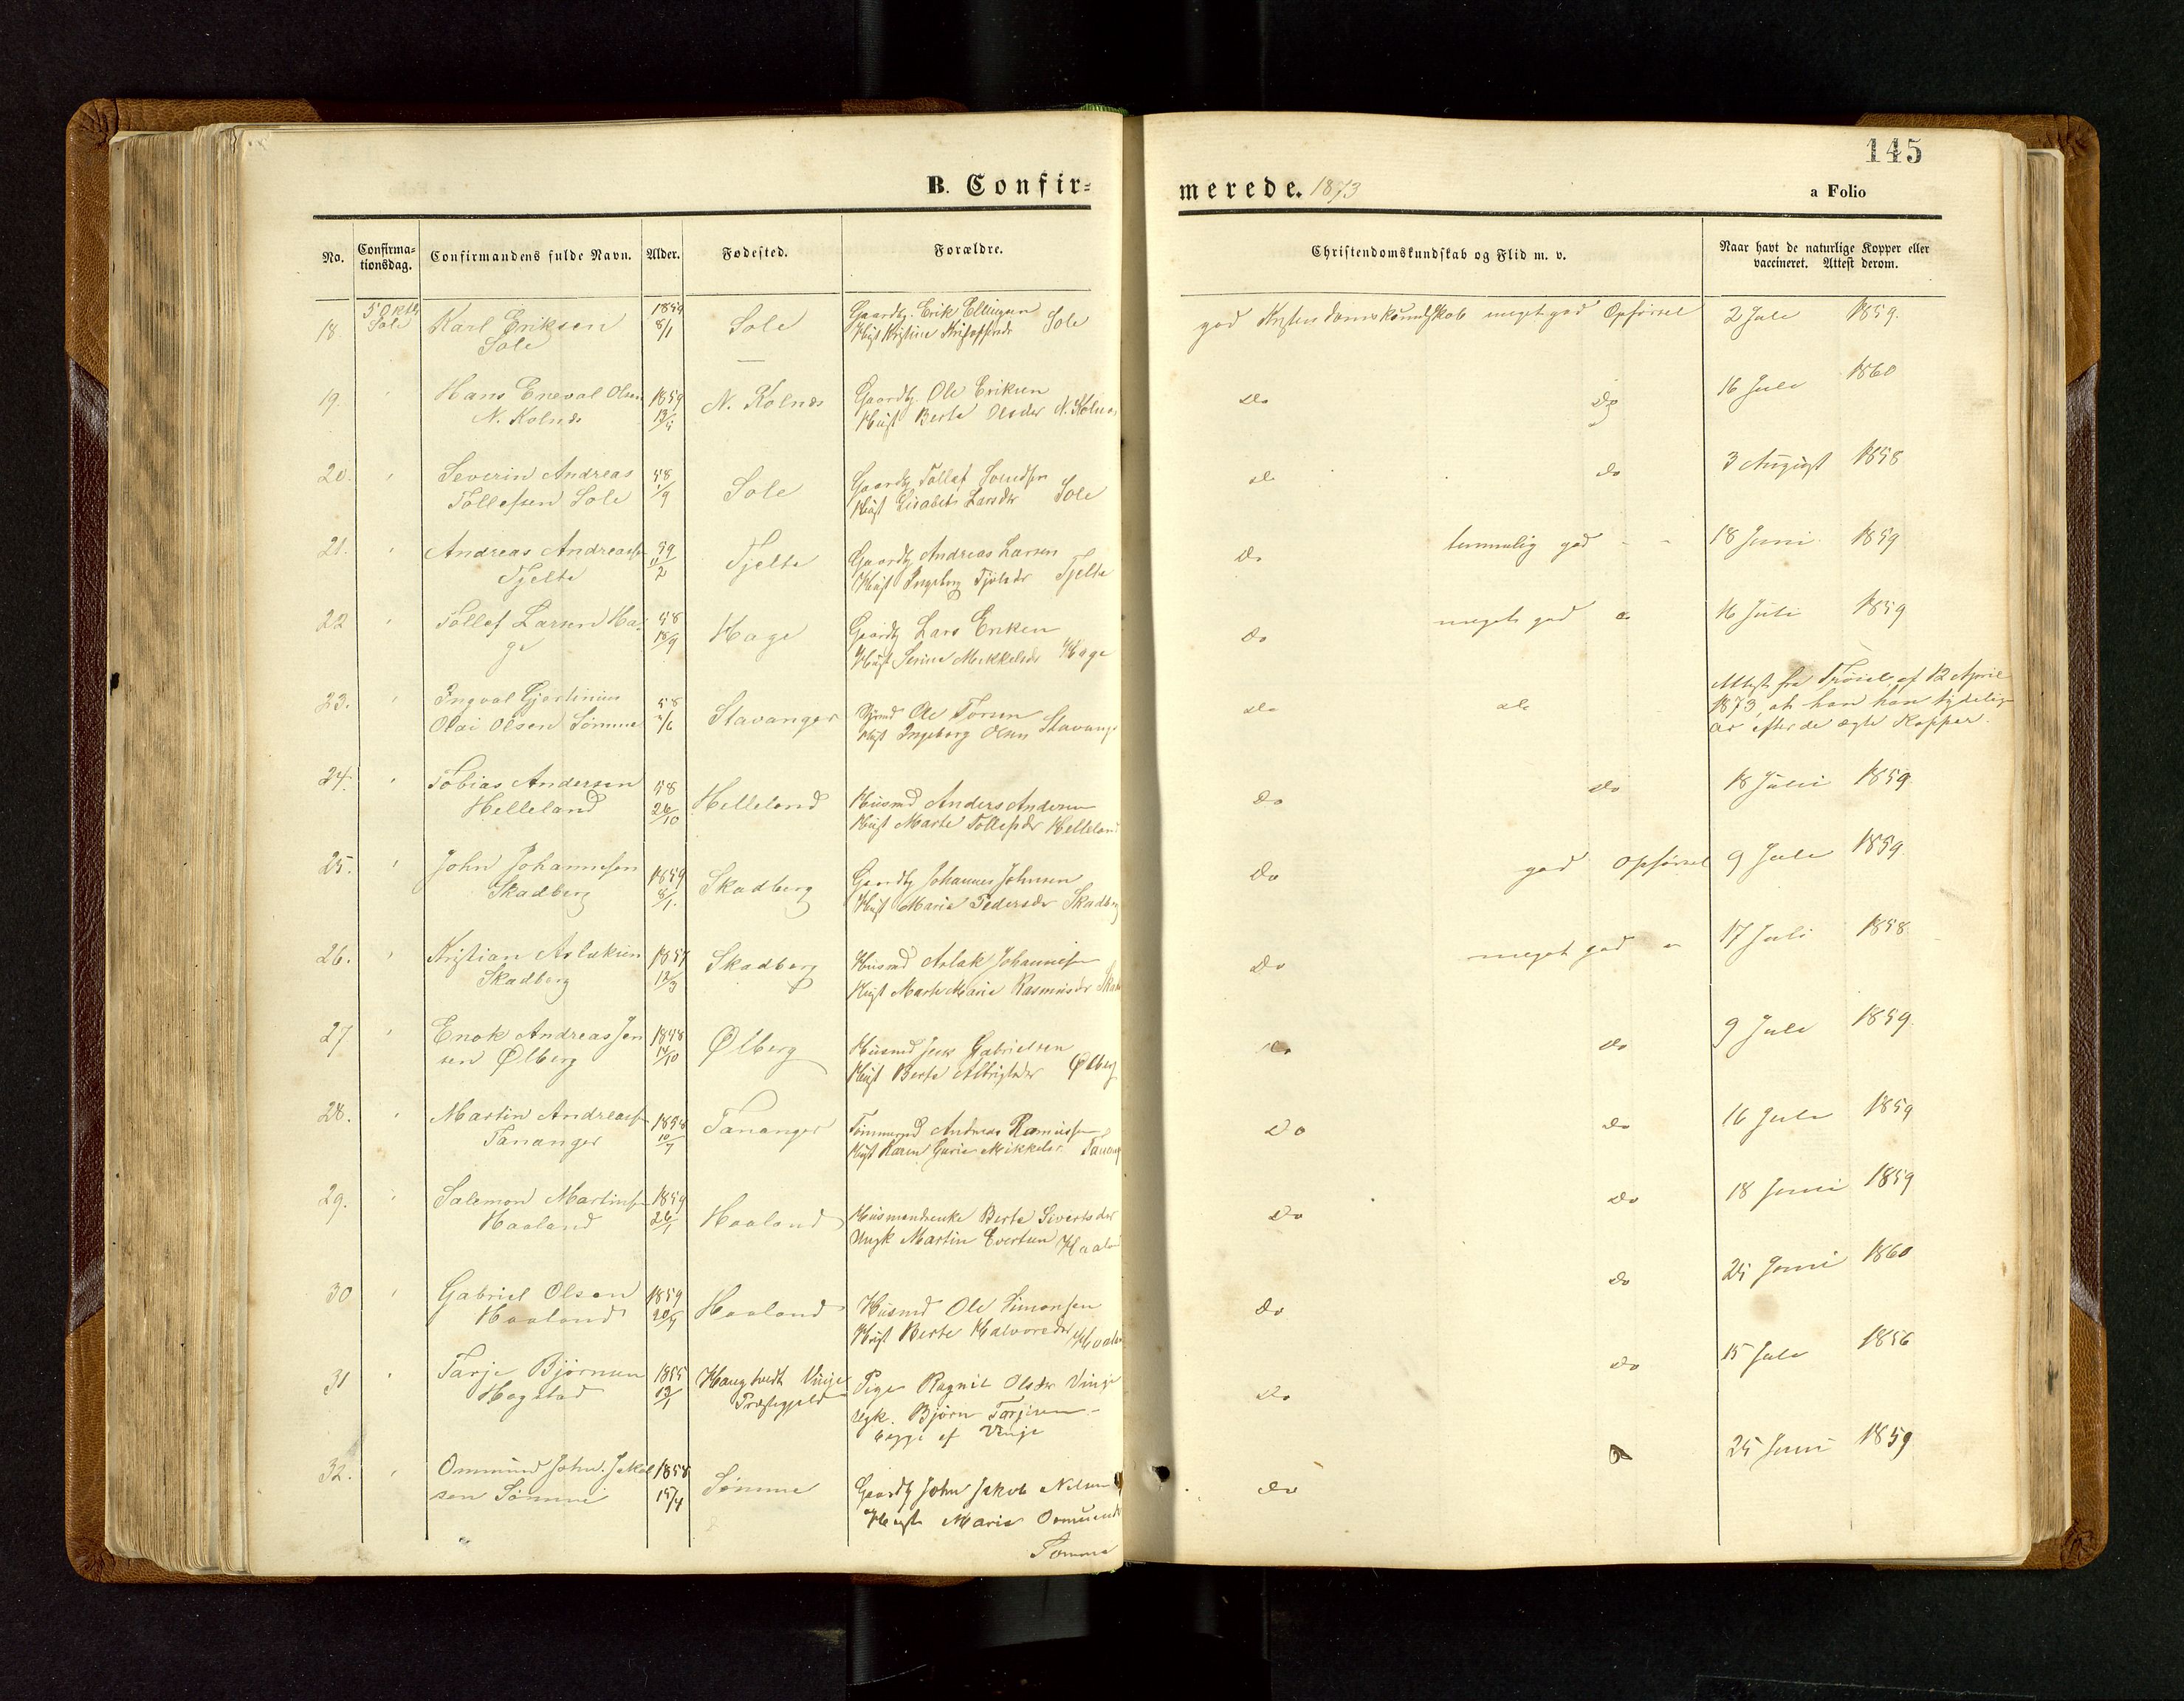 145
B. Confir=
merede. 1873
a Folio
No.
Confirma=
tionsdag.
Confirmandens fulde Navn.
Alder.
Fødested.
Forældre.
Christendomskundskab og Flid m. v.
Naar havt de naturlige Kopper eller
vaccineret. Attest derom.
18. 5 Oktb Karl Eriksen 1859 Sole Gaardbr. Erik Ellingsen Sole god Kristendomskundskab meget god Opførsel 2 Juli 1859.
Sole Sole 8/1 Hust Kristine
19. " Hans Eneval Olsen 1859 N. Kolnes Gaardbr. Ole Eriksen do do 16 Juli 1860
N. Kolnes Hust Berta Olsdr N. Kolnes
20. " Severin Andreas 58 Sole Gaardbr Tollef Svendsen do do 3 August 1858
Tollefsen Sole 1/9 Hust Lisabet Larsdr Sole
21. " Andreas Andreassen 59 Tjelta Gaardbr Andreas Larsen do temmelig god - - 18 Juni 1859
Tjelta 11/2 Hust Ingeborg Tjelta
22 " Tollef Larsen Ha= 58 Hage Gaardbr Lars Eriksen do meget god do 16 Juli 1859
ge 18/9 Hust Serine Mikkelsdr Hage
23. " Ingval Gjertinius 58 Stavanger Ole Torsen Stavanger do do Attest fra af 12 April
Olai Olsen Sømme /6 Hust Ingeborg Olsen 1873, at han har tydelige
Ar efter de ægte Kopper.
24. " Tobias Andersen 58 Helleland Husmd Anders Andersen do do 18 Juli 1859
Helleland 26/10 Hust Marta Tollefsdr Helleland
25. " John Johannesen 1859 Skadberg Gaardbr Johannes Johnsen do god Opførsel 9 Juli 1859
Skadberg 8/1. Hust Maria Pedersdr Skadberg
26. " Kristian Aslaksen 1857 Skadberg Husmd Aslak Johannesen do meget god " 17 Juli 1858
Skadberg 12/3 Hust Marte Marie Rasmusdr
27 " Enok Andreas Jen 1858 Ølberg Husmd Jens Gabrielsen do do 9 Juli 1859
sen Ølberg 14/10 Hust Berta Ølberg
28. " Martin Andreassen 1858 Tananger Tømmermd Andreas Rasmussen do do 16 Juli 1859
Tananger 10/7 Hust Karen Gurie Mikkelsdr Tanang
29. " Salemon Martinsen 1859 Haaland Husmandsenke Berta Sivertsdr do do 18 Juni 1859
Haaland 26/1 Ungk Martin Evertsen Haaland
30 " Gabriel Olsen 1859 Haaland Husmd Ole Simonsen do do 25 Juni 1860
Haaland 20/4 Hust Berte Halvorsdr Haaland
31 " Tarje Bjørnsen 1855 Haugtvedt Vinje Pige Ragnil Olsdr Vinje do do 15 Juli 1856
Hogstad 12/1 Præstegjeld Ugk. Bjørn Tarjesen
begge af Vinje
32. " Ommund John Jakob 1858 Sømme Gaardbr John Jakob Nilsen do 25 Juni 1859
sen Sømme 15/4 Hust Marie Osmunds
Sømme